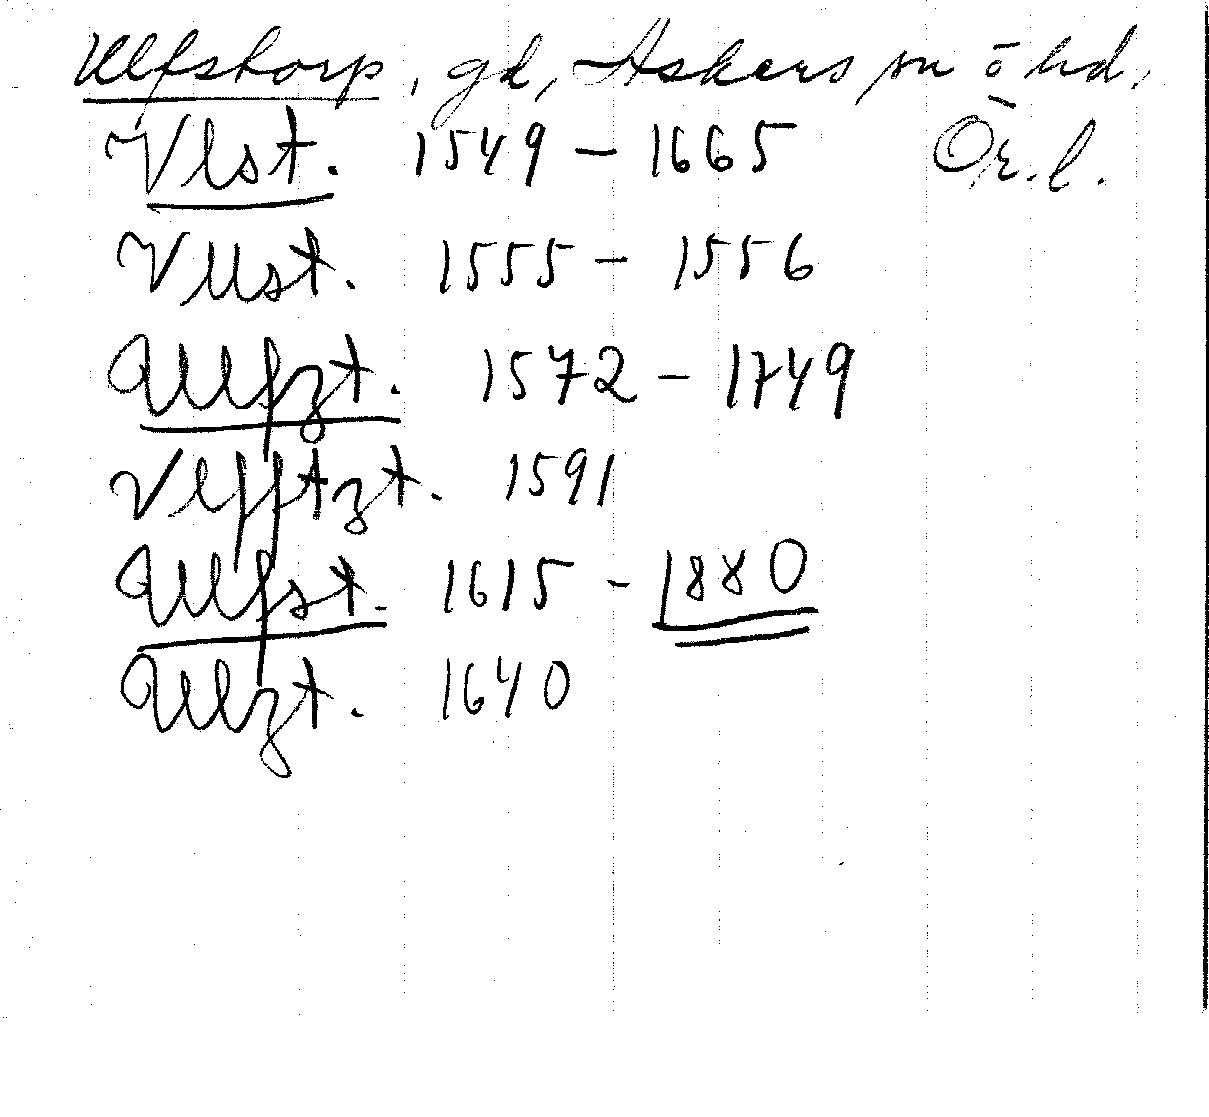 Ulfstorp, gd, Askers sn ō hd,
Vlst. 1549 – 1665 Ōr. l.
Vllst. 1555 – 1556
Ullfzt. 1572 – 1749
Vlfftzt. 1591
Ulfst. 1615 – 1880
Ullzt. 1640